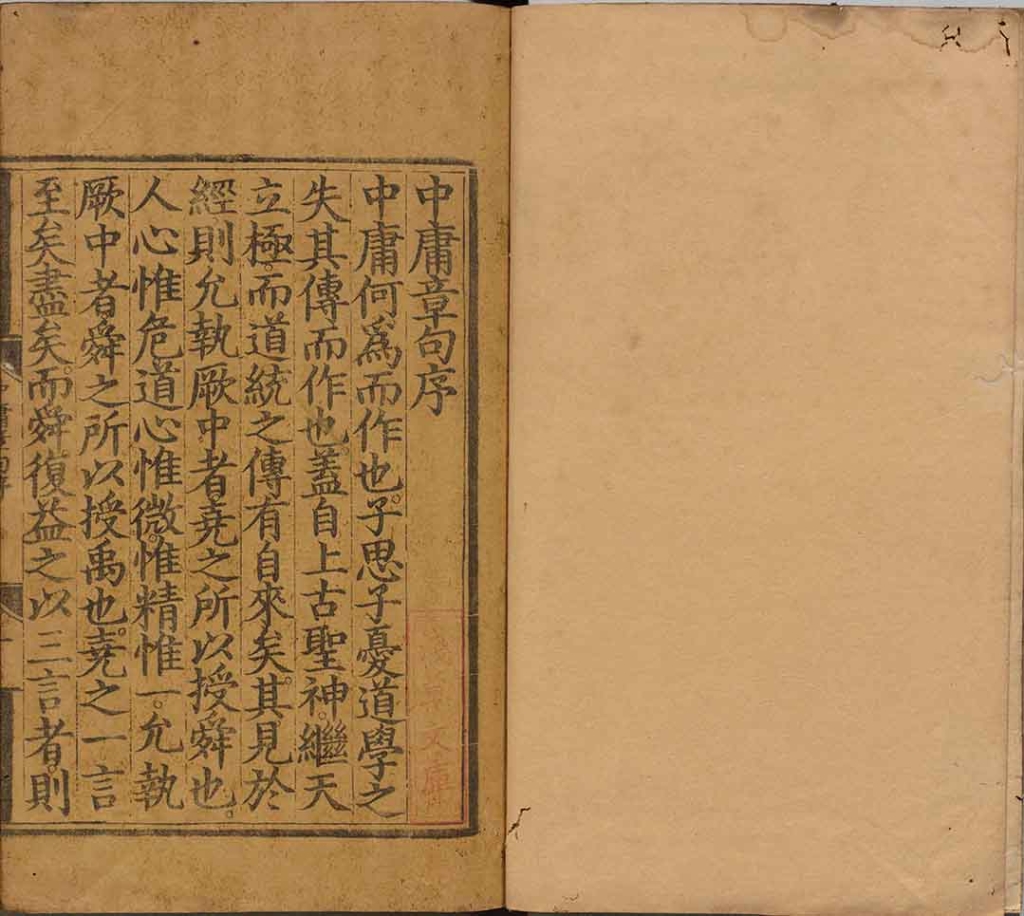 中庸章句序
中庸何爲而作也。子思子憂道學之
失其傳而作也。蓋自上古聖神。繼天
立極。而道統之傳有自來矣。其見於
經則允執厥中者。堯之所以授舜也。
人心惟危。道心惟微。惟精惟一。允執
厥中者。舜之所以授禹也。堯之一言
至矣盡矣。而舜復益之以三言者。則
文庫